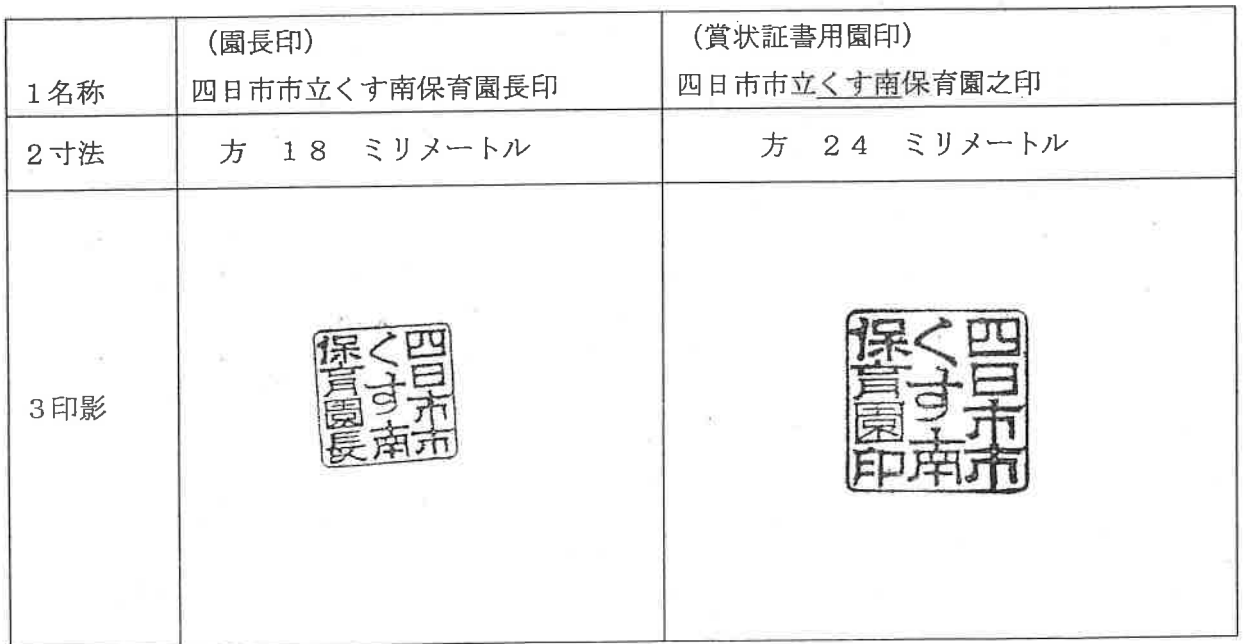 （園長印）
（賞状証書用園印）
1名称
四日市市立くす南保育園長印
四日市市立くす南保育園之印
2寸法
方　18　ミリメートル
方　24　ミリメートル
3印影
四日市市
くす南
保育園長
四日市市
くす南
保育園印